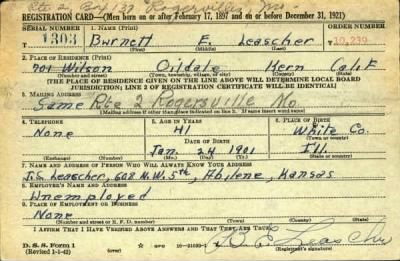 Rte 2 Rogersville, Mo
REGISTRATION CARD—(Men born on or after February 17, 1897 and on or before December 31, 1921)
SERIAL NUMBER 1. NAME (Print) ORDER NUMBER
T 1303 Burnett E. Leascher 10,239
(First) (Middle) (Last)
2. PLACE OF RESIDENCE (Print)
701 Wilson Oildale Kern Calif
(Number and street) (Town, township, village, or city) (County) (State)
[THE PLACE OF RESIDENCE GIVEN ON THE LINE ABOVE WILL DETERMINE LOCAL BOARD
JURISDICTION; LINE 2 OF REGISTRATION CERTIFICATE WILL BE IDENTICAL]
3. MAILING ADDRESS
Same Rte 2 Rogersville Mo
[Mailing address if other than place indicated on line 2. If same insert word same]
4. TELEPHONE 5. AGE IN YEARS 6. PLACE OF BIRTH
None 41 White Co.
DATE OF BIRTH (Town or county)
Jan. 24 1901 Ill.
(Exchange) (Number) (Mo.) (Day) (Yr.) (State or country)
7. NAME AND ADDRESS OF PERSON WHO WILL ALWAYS KNOW YOUR ADDRESS
J.S. Leascher, 608 N.W. 5th, Abilene, Kansas
8. EMPLOYER'S NAME AND ADDRESS
Unemployed
9. PLACE OF EMPLOYMENT OR BUSINESS
None
(Number and street or R. F. D. number) (Town) (County) (State)
I AFFIRM THAT I HAVE VERIFIED ABOVE ANSWERS AND THAT THEY ARE TRUE.
D. S. S. Form 1
(Revised 1-1-42) B. E. Leascher
(Registrant's signature)